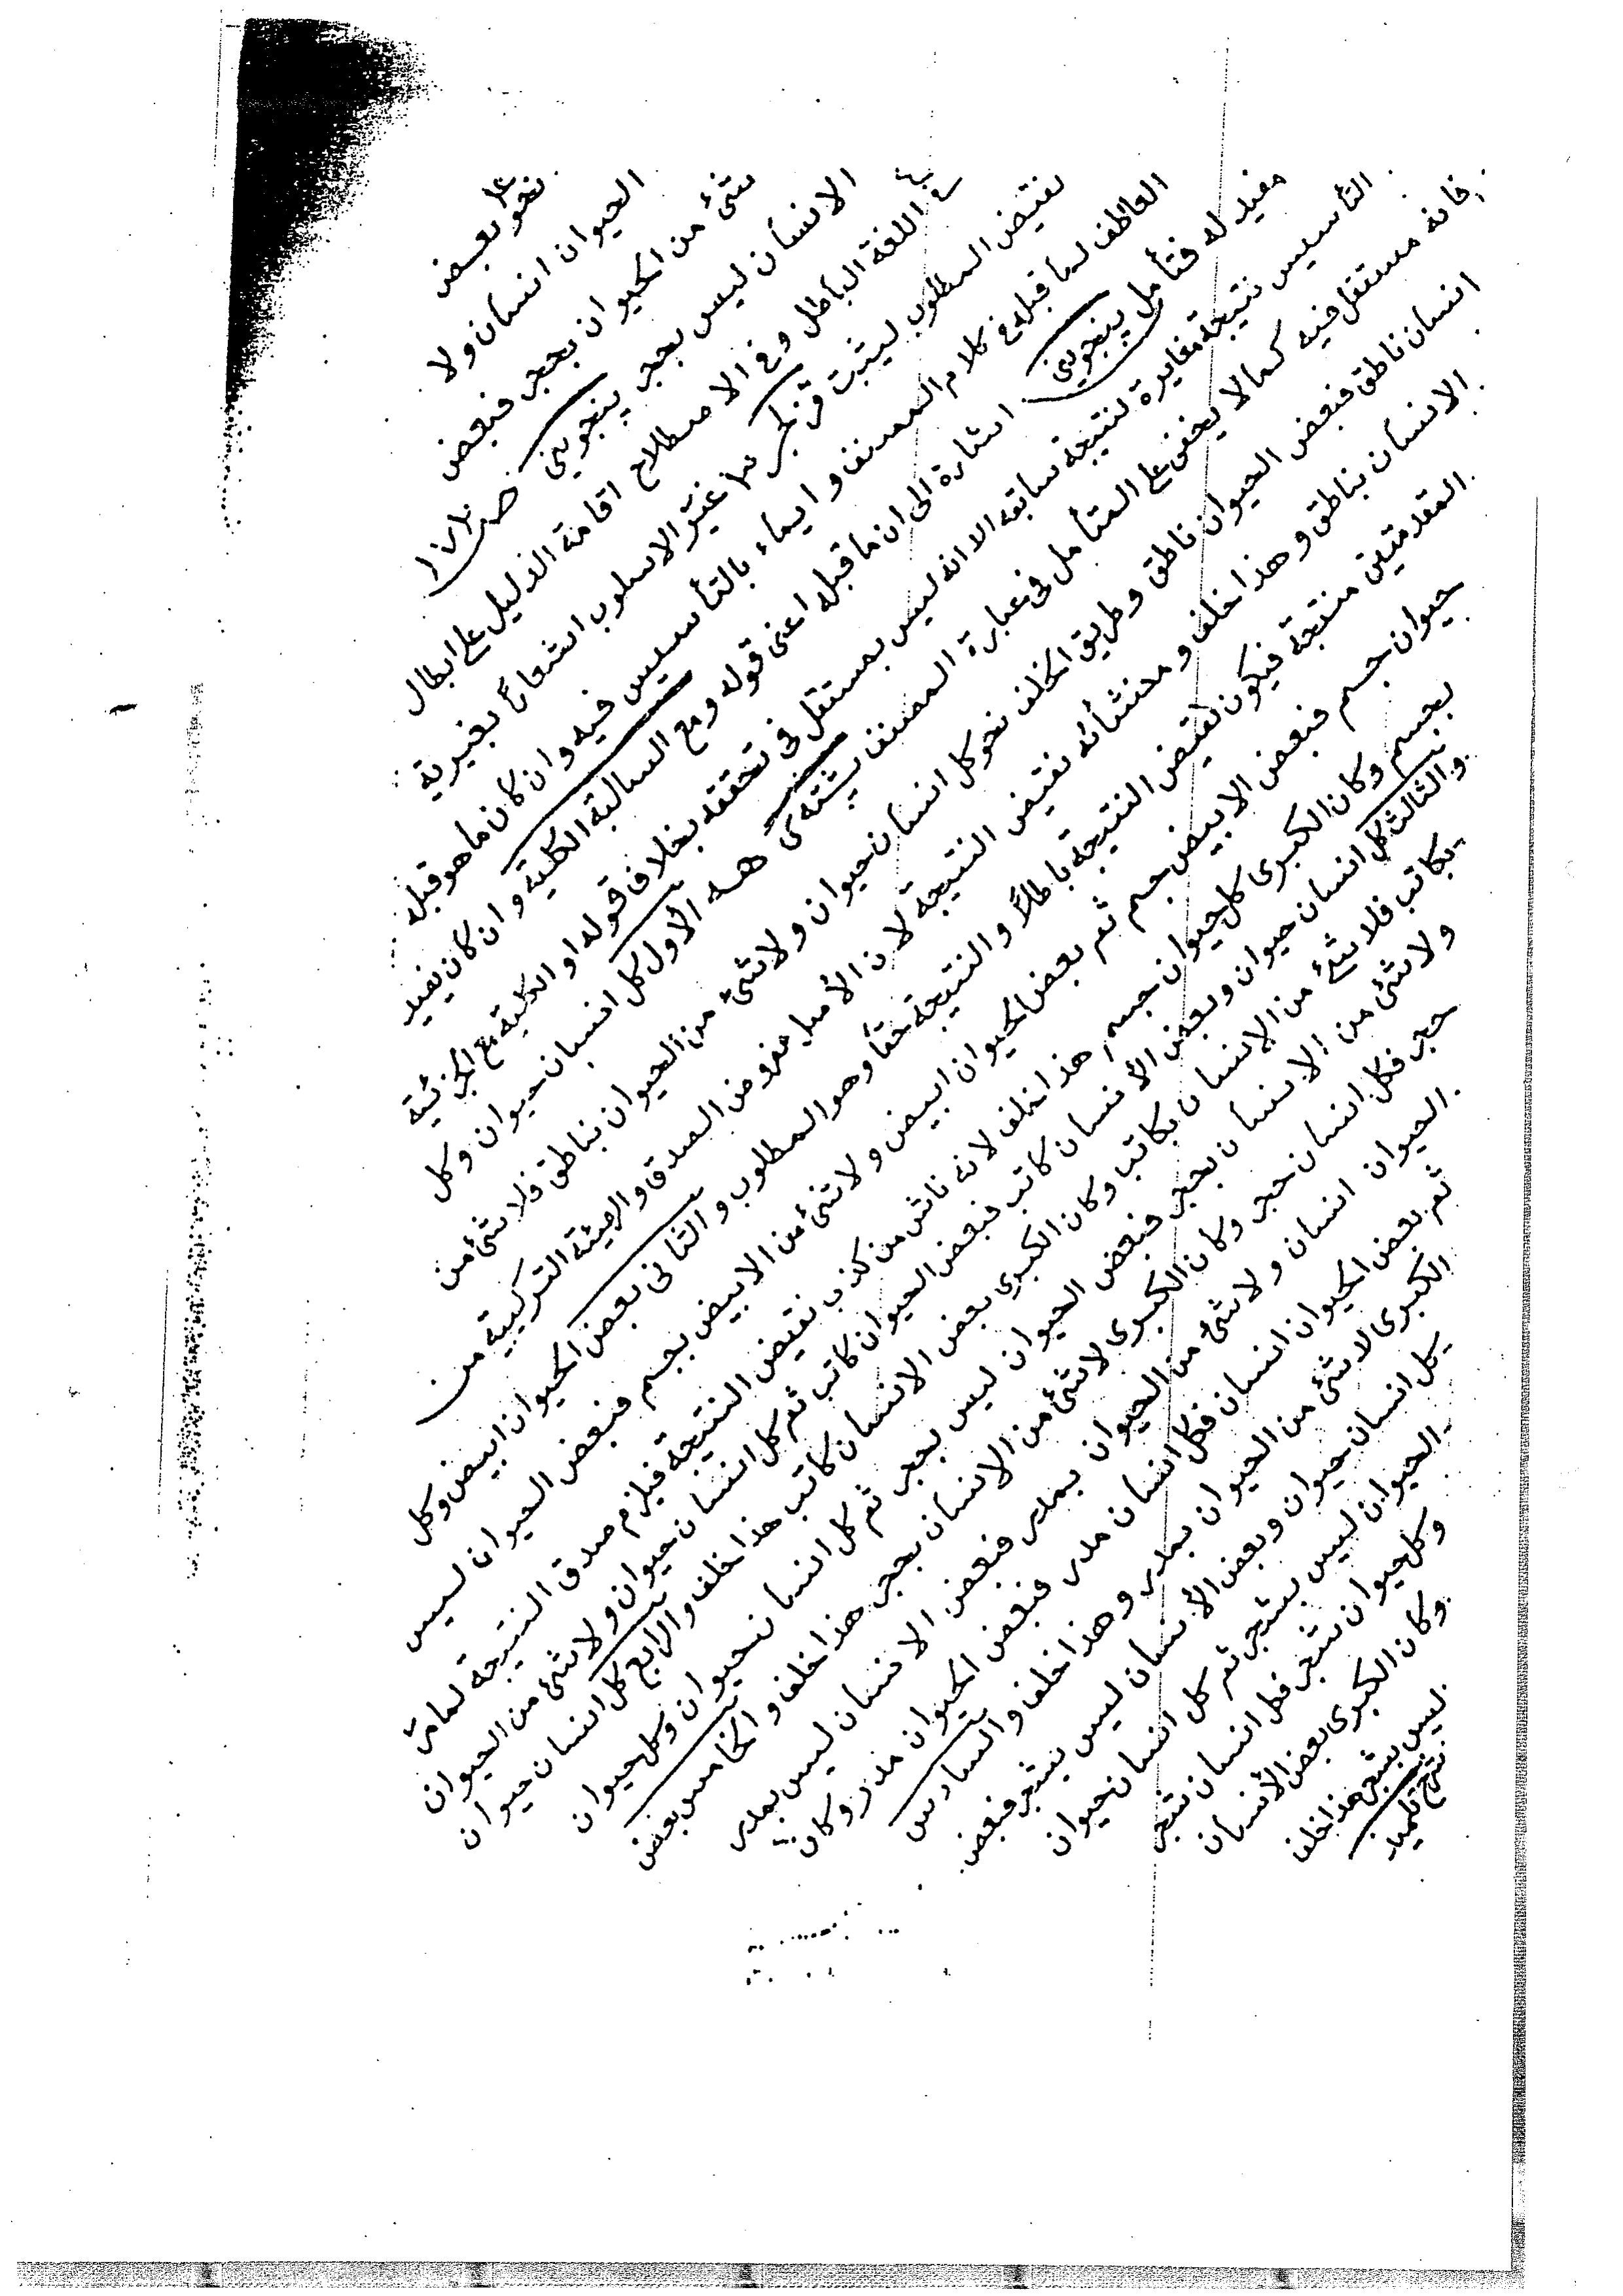 نحو بعض
الحيوان انسان ولا
شئ من الحيوان بحجر فبعض
الانسان ليس بحجر ينجوينى
اللغة الباطل وفى الاصطلاح اقامة الدليل على ابطال
نقيض المطلوب ليثبت قزلجى غيّر الاسلوب اشعارًا بغيرية
العاطف لما قبله فى كلام المصنف وايماء بالتأسيس فيه وان كان ما هو قبله
مفيد له فتأمل ينجوينى اشارة الى ان ما قبله اعنى قوله ومع السالبة الكلية وان كان يفيد
التأسيس نتيجة مغايرة لنتيجة سابقه الا انه ليس بمستقل فى تحققه بخلاف قوله او الكلية مع الجزئية
فانه مستقل فيه كما لا يخفى على المتأمل فى عبارة المصنف الاول كل انسان حيوان وكل
انسان ناطق فبعض الحيوان ناطق وطريق الخلف نحو كل انسان حيوان ولا شئ من الحيوان بناطق فلا شئ من
الانسان بناطق وهذا خلف ومنشأئه نقيض النتيجة لان الأصل مفروض الصدق والهيئة التركيبية من
المقدمتين منتجة فيكون نقيض النتيجة باطلاً والنتيجة حقا وهو المطلوب والثانى بعض الحيوان ابيض وكل
حيوان جسم فبعض الابيض جسم ثم بعض الحيوان ابيض ولا شئ من الابيض بجسم فبعض الحيوان ليس
بجسم وكان الكبرى كل حيوان جسم هذا خلف لانه ناش من كذب نقيض النتيجة فيلزم صدق النتيجة لما مرّ
والثالث كل انسان حيوان وبعض الأنسان كاتب فبعض الحيوان كاتب ثم كل انسان حيوان ولا شئ من الحيوان
بكاتب فلا شئ من الانسان بكاتب وكان الكبرى بعض الانسان كاتب هذا خلف والرابع كل انسان حيوان
ولا شئ من الانسان بحجر فبعض الحيوان ليس بحجر ثم كل انسان حيوان وكل حيوان
حجر فكل انسان حجر وكان الكبرى لا شئ من الانسان بحجر هذا خلف والخامس بعض
الحيوان انسان ولا شئ من الحيوان بمدر فبعض الانسان ليس بمدر
ثم بعض الحيوان انسان فكل انسان مدر فبعض الحيوان مدر وكان
الكبرى لا شئ من الحيوان بمدر وهذا خلف والسادس
كل انسان حيوان وبعض الأنسان ليس بشجر فبعض
الحيوان ليس بشجر ثم كل انسان حيوان
وكل حيوان شجر فكل انسان شجر
وكان الكبرى بعض الأنسان
ليس بشجر هذا خلف
شرح تلميذ